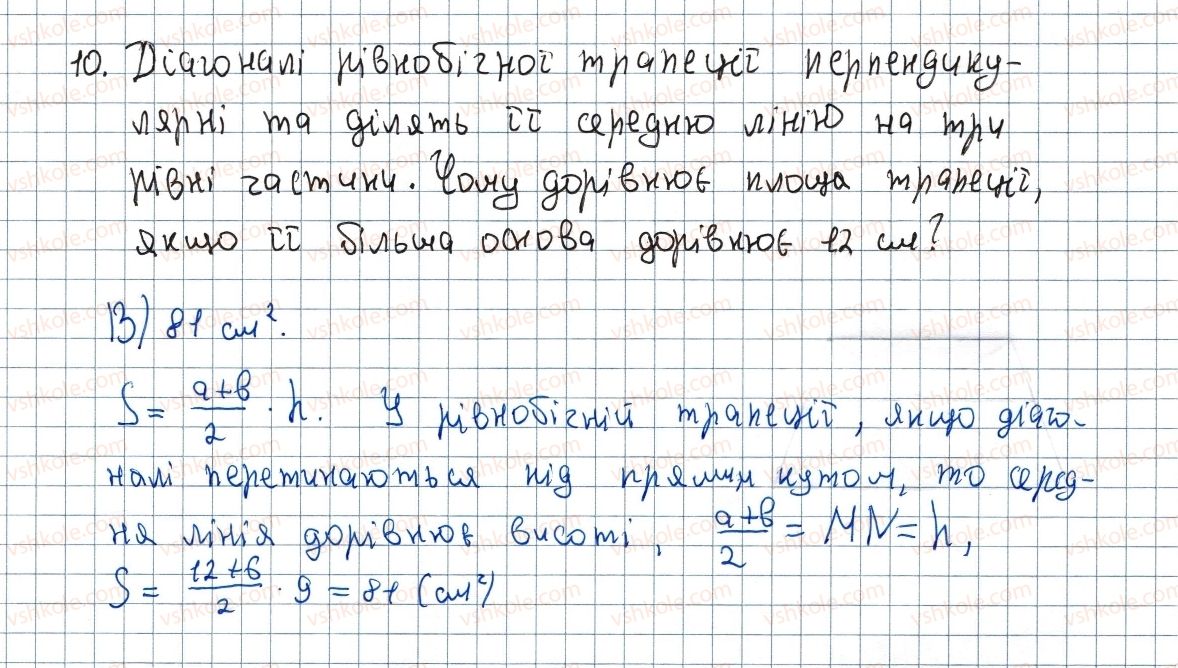 10. Діагоналі рівнобічної трапеції перпендику-
лярні та ділять її середню лінію на три
рівні частини. Чому дорівнює площа трапеції,
якщо її більша основа дорівнює 12 см?
В) 81 см².
S = (a+b)/2 · h. У рівнобічній трапеції, якщо діаго-
налі перетинаються під прямим кутом, то серед-
ня лінія дорівнює висоті, (a+b)/2 = MN = h,
S = (12+6)/2 · 9 = 81 (см²)